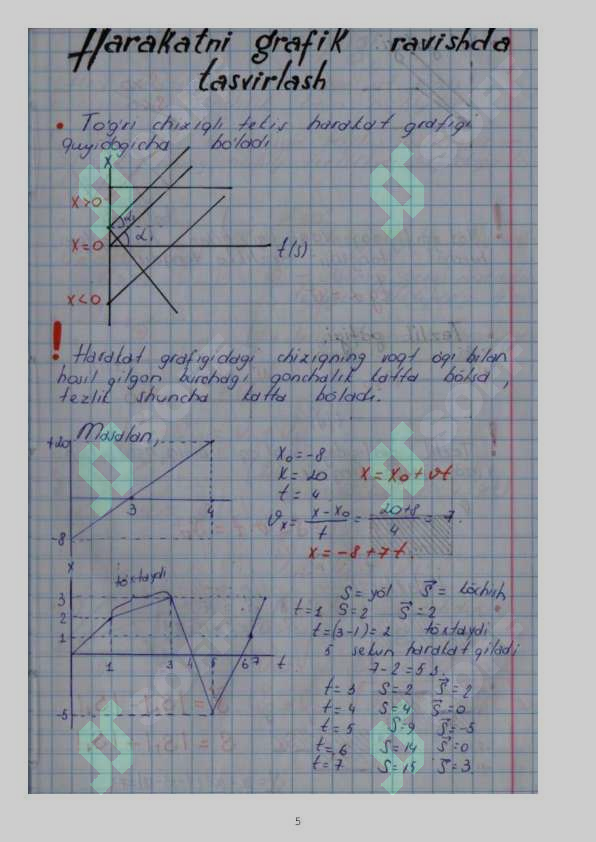 Harakatni grafik ravishda
tasvirlash
• To'g'ri chiziqli tekis harakat grafigi
quyidagicha bo'ladi
x
x>0
α₂
α₁
x=0
t(s)
x<0
! Harakat grafigidagi chiziqning vaqt o'qi bilan
hosil qilgan burchagi qanchalik katta bo'lsa,
tezlik shuncha katta bo'ladi.
Masalan,
+20
3 4
-8
x₀=-8
x=20 x=x₀+ϑt
t=4
ϑₓ= x-x₀/t = 20+8/4 = 7.
x=-8+7t
x
to'xtaydi
3
2
1
1 3 4 5 6 7 t
-5
S=yo'l S⃗= ko'chish
t=1 S=2 S⃗=2
t=(3-1)=2 to'xtaydi
5 sekun harakat qiladi
7-2=5 s.
t=3 S=2 S⃗=2
t=4 S=4 S⃗=0
t=5 S=9 S⃗=-5
t=6 S=14 S⃗=0
t=7 S=15 S⃗=3
5